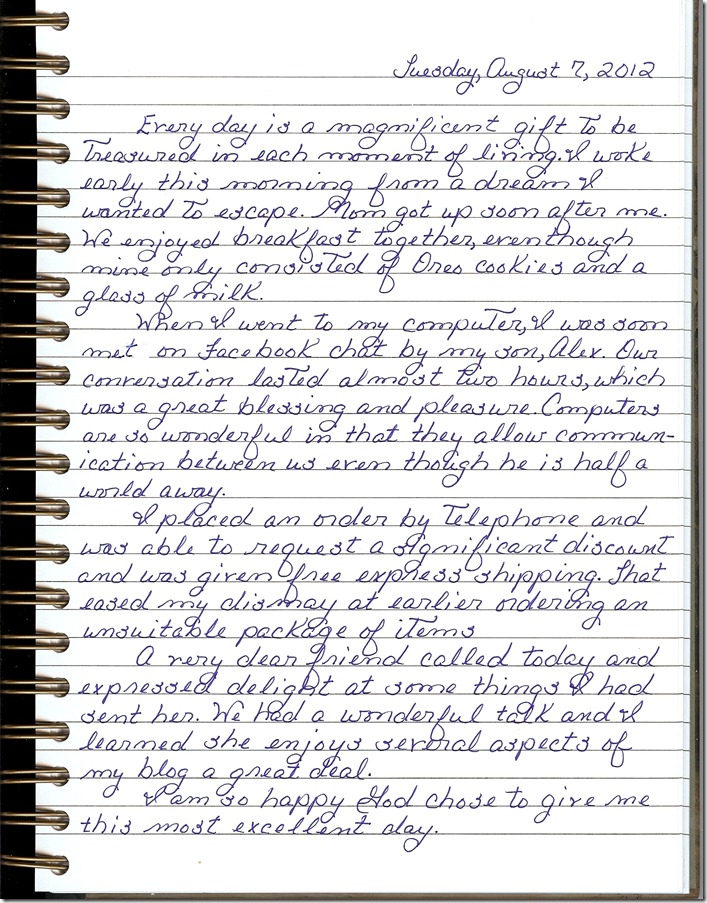 Tuesday, August 7, 2012
Every day is a magnificent gift to be
treasured in each moment of living. I woke
early this morning from a dream I
wanted to escape. Mom got up soon after me.
We enjoyed breakfast together, even though
mine only consisted of Oreo cookies and a
glass of milk.
When I went to my computer, I was soon
met on Facebook chat by my son, Alex. Our
conversation lasted almost two hours, which
was a great blessing and pleasure. Computers
are so wonderful in that they allow commun-
ication between us even though he is half a
world away.
I placed an order by telephone and
was able to request a significant discount
and was given free express shipping. That
eased my dismay at earlier ordering an
unsuitable package of items
A very dear friend called today and
expressed delight at some things I had
sent her. We had a wonderful talk and I
learned she enjoys several aspects of
my blog a great deal.
I am so happy God chose to give me
this most excellent day.